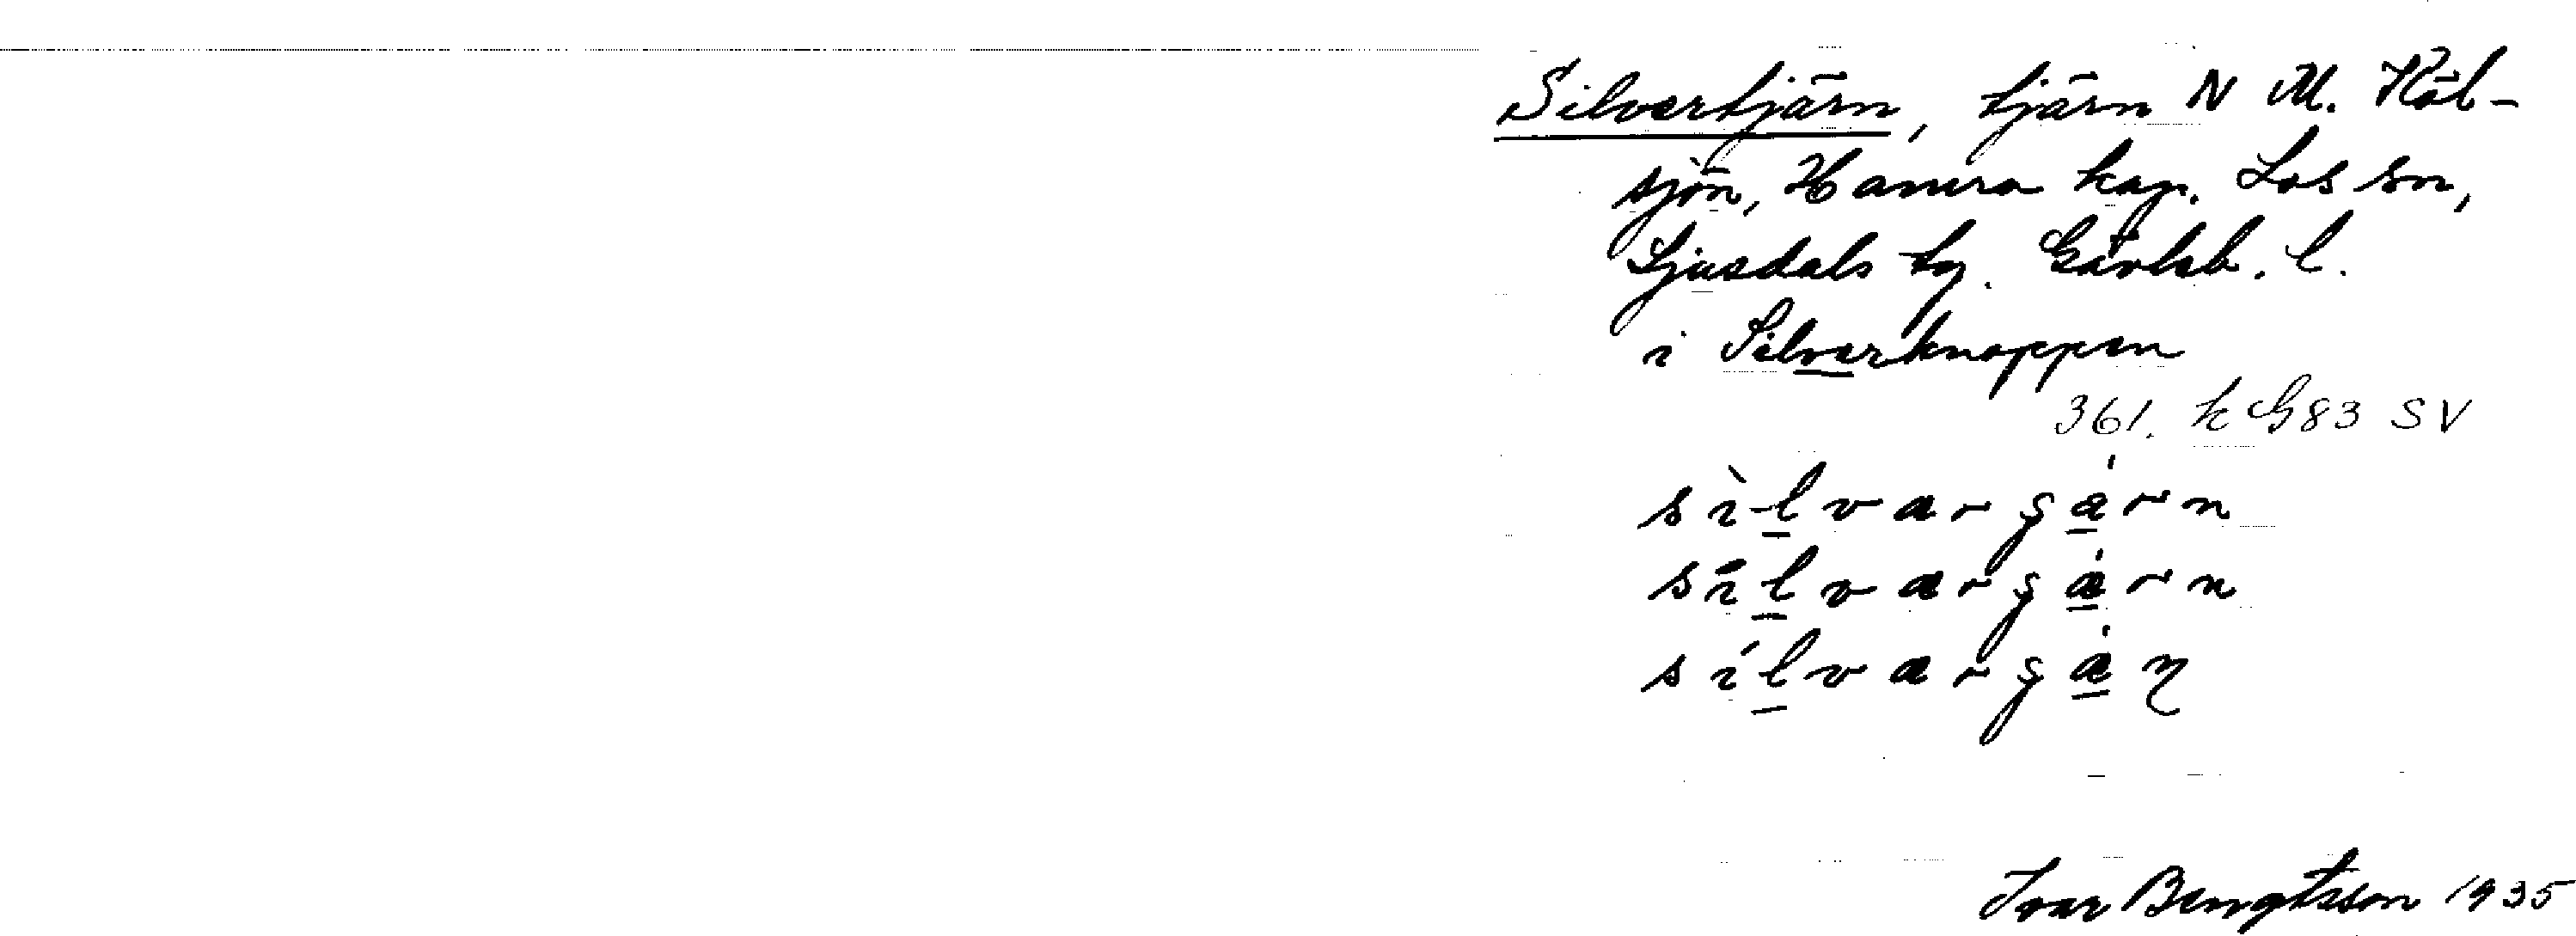 Silvertjärn, tjärn N M. Köl-
sjön, Hamra kap. Los sn,
Ljusdals tg. Gävleb. l.
i Silverknoppen
361. k G83 SV
sìlvarʂá̱rn
sīlvarʂá̱rn
sílvarʂá̱ɳ
Ivar Bengtsson 1935